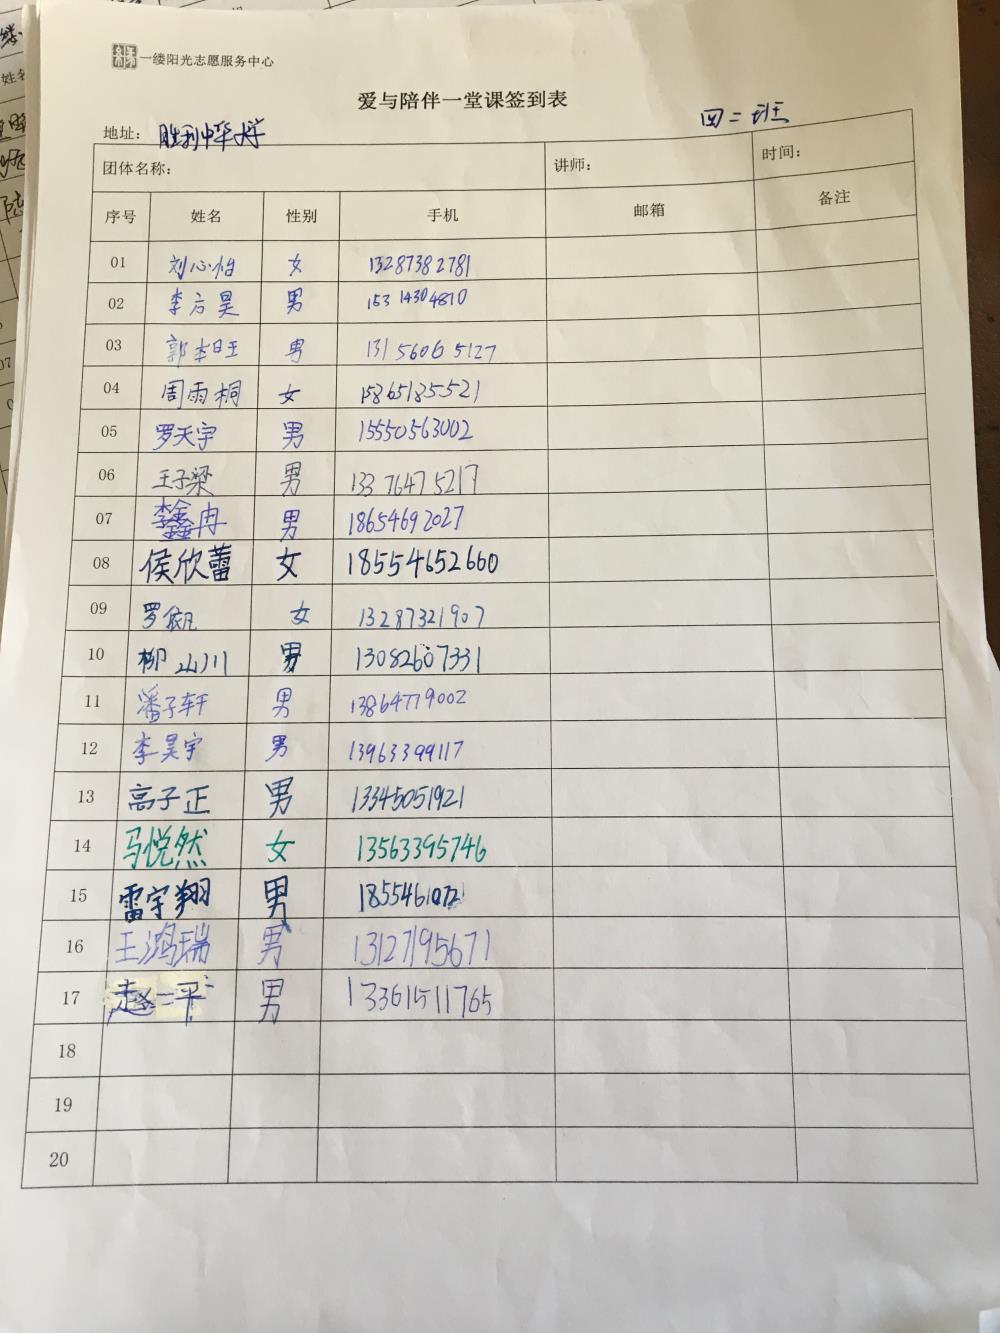 一缕阳光志愿服务中心
爱与陪伴一堂课签到表
四二班
地址：胜利中华大学
团体名称： 讲师： 时间：
序号 姓名 性别 手机 邮箱 备注
01 刘心怡 女 13287382781
02 李方昊 男 15314304810
03 郭本旺 男 13156065127
04 周雨桐 女 15865185521
05 罗天宇 男 15550563002
06 王子梁 男 13376475217
07 李鑫冉 男 18654692027
08 侯欣蕾 女 18554652660
09 罗 女 13287321907
10 柳山川 男 13082607331
11 潘子轩 男 13864779002
12 李昊宇 男 13963399117
13 高子正 男 13345051921
14 马悦然 女 13563395746
15 雷宇翔 男
16 王鸿瑞 男 13127195671
17 赵二平 男 13361511765
18
19
20